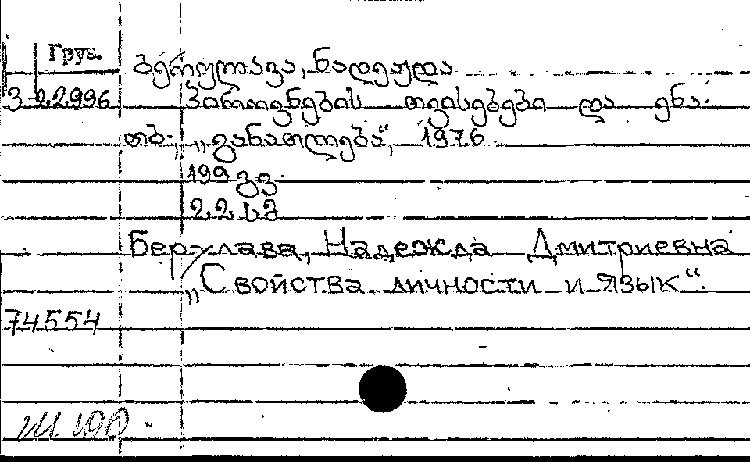 Груз.
ბერულავა, ნადეჟდა
3 22996 პიროვნების თვისებები და ენა.
თბ. „განათლება“, 1976
199 გვ.
22 სმ
Берулава, Надежда Дмитриевна
„Свойства личности и язык“.
74554